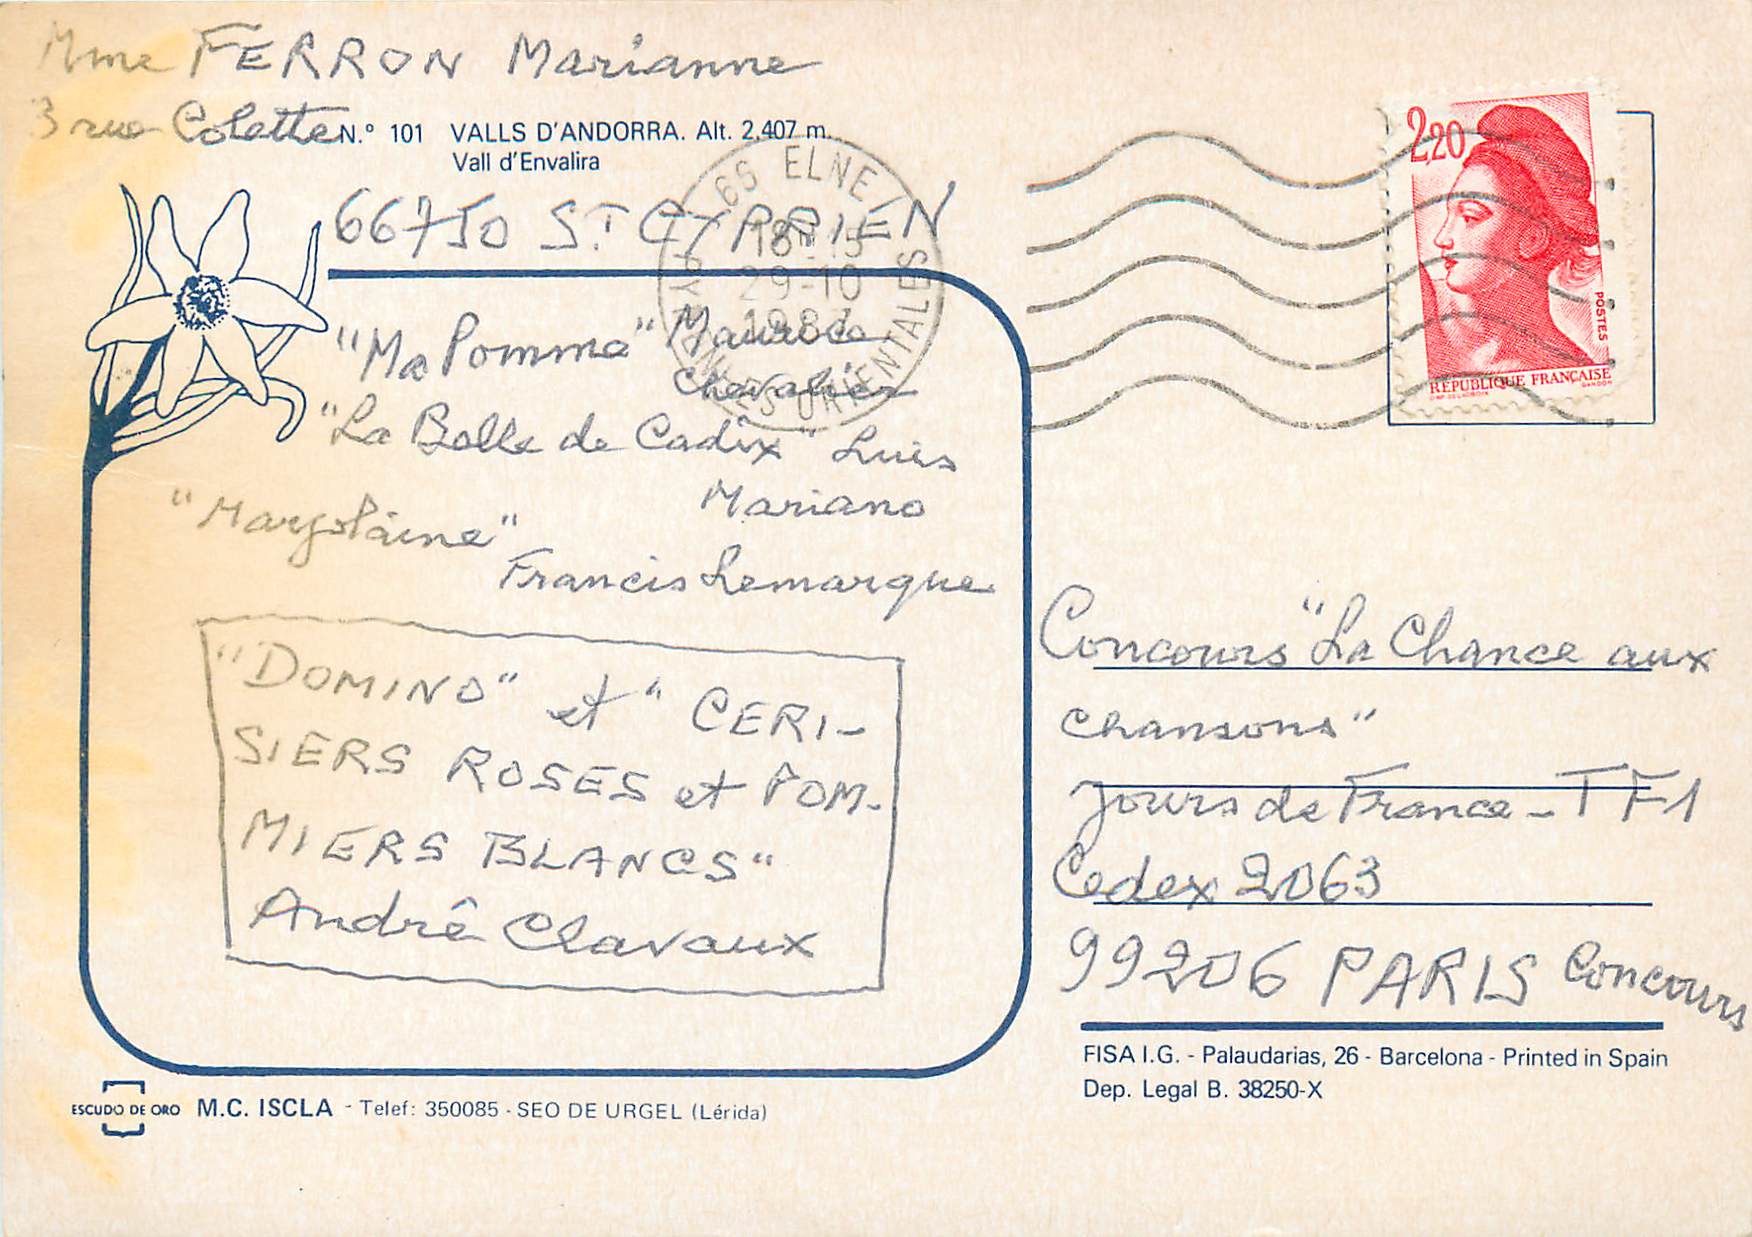 Mme FERRON Marianne
3 rue Colette
N.º 101 VALLS D'ANDORRA. Alt. 2,407 m.
Vall d'Envalira
66750 ST CYPRIEN
66 ELNE
18H15
29-10
PYRENNEES ORIENTALES
2,20
POSTES
REPUBLIQUE FRANÇAISE
GANDON
"Ma Pomme" Maurice
Chevalier
"La Belle de Cadix" Luis
Mariano
"Marjolaine"
Francis Lemarque
"DOMINO" et "CERI-
SIERS ROSES et POM-
MIERS BLANCS"
André Clavaux
Concours "La Chance aux
chansons"
Jours de France - TF1
Cedex 2063
99206 PARIS Concours
FISA I.G. - Palaudarias, 26 - Barcelona - Printed in Spain
Dep. Legal B. 38250-X
ESCUDO DE ORO M.C. ISCLA - Telef: 350085 - SEO DE URGEL (Lérida)